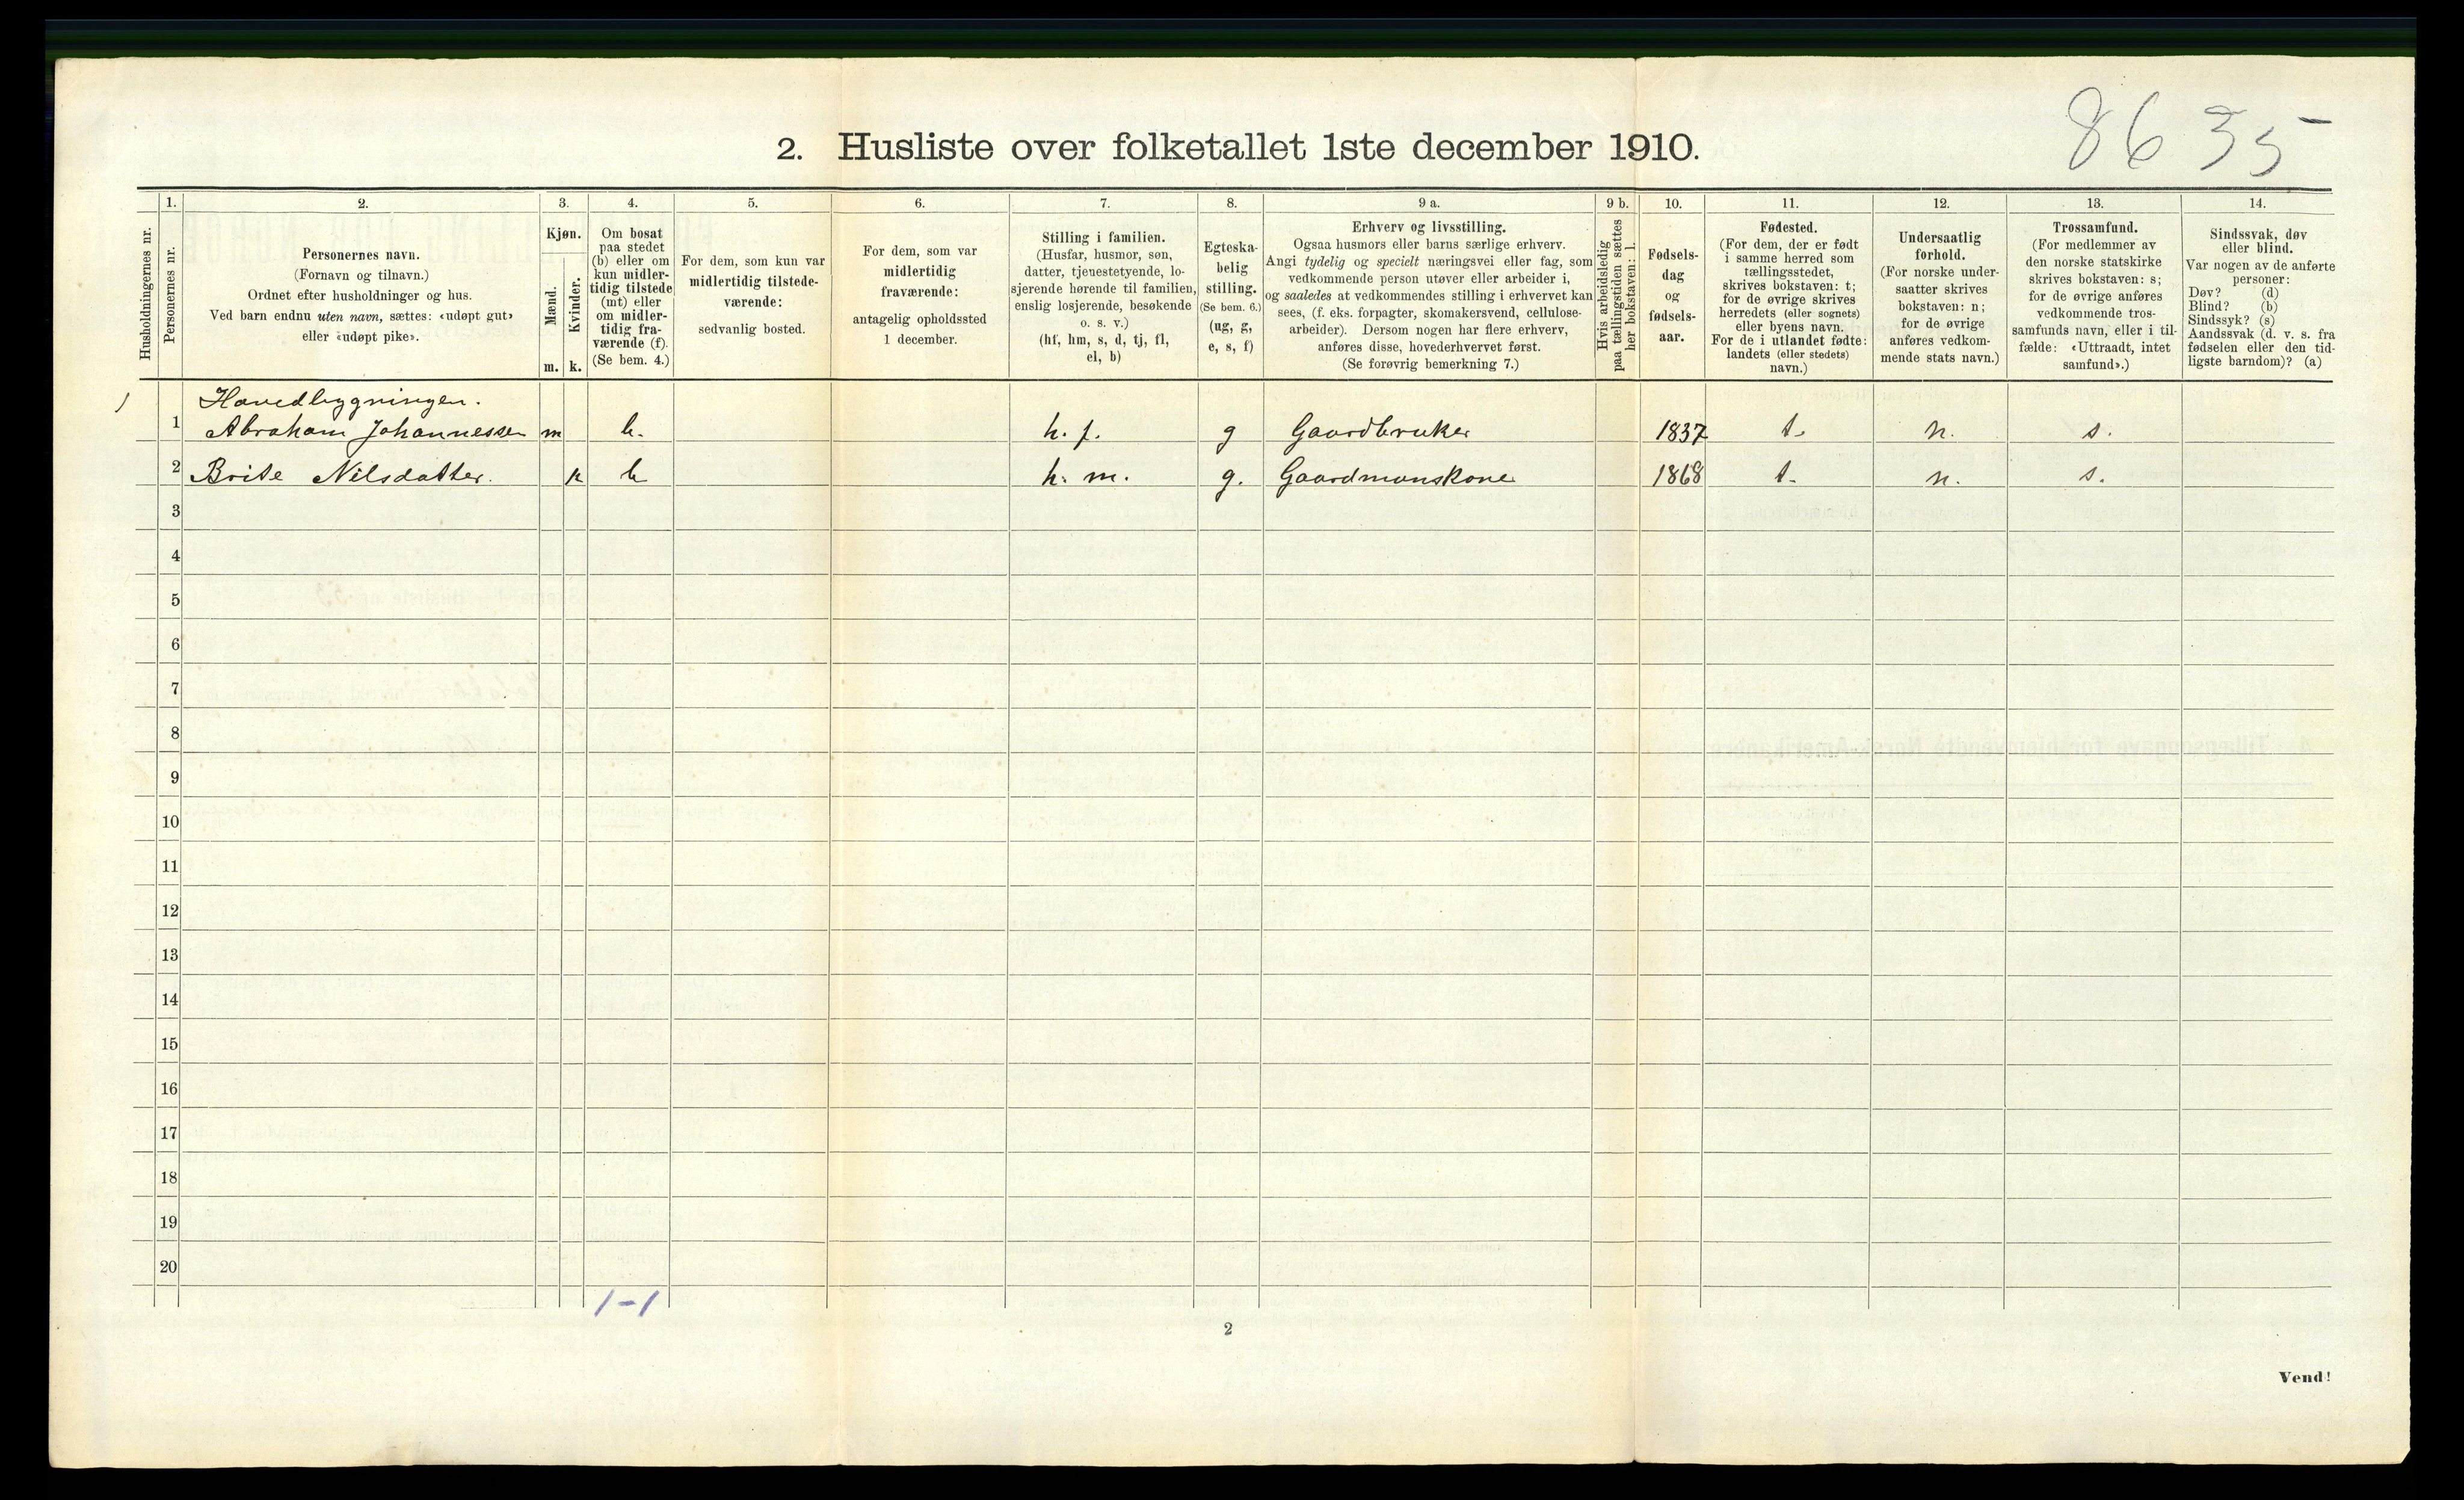 8635
2. Husliste over folketallet 1ste december 1910.
Husholdningernes nr.
1.
Personernes nr.
2.
Personernes navn.
(Fornavn og tilnavn.)
Ordnet efter husholdninger og hus.
Ved barn endnu uten navn, sættes: «udøpt gut»
eller «udøpt pike».
3.
Kjøn.
Mænd.
m.
Kvinder.
k.
4.
Om bosat
paa stedet
(b) eller om
kun midler-
tidig tilstede
(mt) eller
om midler-
tidig fra-
værende (f).
(Se bem. 4.)
5.
For dem, som kun var
midlertidig tilstede-
værende:
sedvanlig bosted.
6.
For dem, som var
midlertidig
fraværende:
antagelig opholdssted
1 december.
7.
Stilling i familien.
(Husfar, husmor, søn,
datter, tjenestetyende, lo-
sjerende hørende til familien,
enslig losjerende, besøkende
o. s. v.)
(hf, hm, s, d, tj, fl,
el, b)
8.
Egteska-
belig
stilling.
(Se bem. 6.)
(ug, g,
e, s, f)
9 a.
Erhverv og livsstilling.
Ogsaa husmors eller barns særlige erhverv.
Angi tydelig og specielt næringsvei eller fag, som
vedkommende person utøver eller arbeider i,
og saaledes at vedkommendes stilling i erhvervet kan
sees, (f. eks. forpagter, skomakersvend, cellulose-
arbeider). Dersom nogen har flere erhverv,
anføres disse, hovederhvervet først.
(Se forøvrig bemerkning 7.)
9 b.
Hvis arbeidsledig
paa tællingstiden sættes
her bokstaven: l.
10.
Fødsels-
dag
og
fødsels-
aar.
11.
Fødested.
(For dem, der er født
i samme herred som
tællingsstedet,
skrives bokstaven: t;
for de øvrige skrives
herredets (eller sognets)
eller byens navn.
For de i utlandet fødte:
landets (eller stedets)
navn.)
12.
Undersaatlig
forhold.
(For norske under-
saatter skrives
bokstaven: n;
for de øvrige
anføres vedkom-
mende stats navn.)
13.
Trossamfund.
(For medlemmer av
den norske statskirke
skrives bokstaven: s;
for de øvrige anføres
vedkommende tros-
samfunds navn, eller i til-
fælde: «Uttraadt, intet
samfund».)
14.
Sindssvak, døv
eller blind.
Var nogen av de anførte
personer:
Døv? (d)
Blind? (b)
Sindssyk? (s)
Aandssvak (d. v. s. fra
fødselen eller den tid-
ligste barndom)? (a)
Hovedbygningen.
1 Abraham Johannessen m b. h. f. g Gaardbruker 1837 t. n. s.
2 Brite Nilsdatter. k b h. m. g. Gaardmanskone 1868 t. n. s.
3
4
5
6
7
8
9
10
11
12
13
14
15
16
17
18
19
20
1-1
2
Vend!